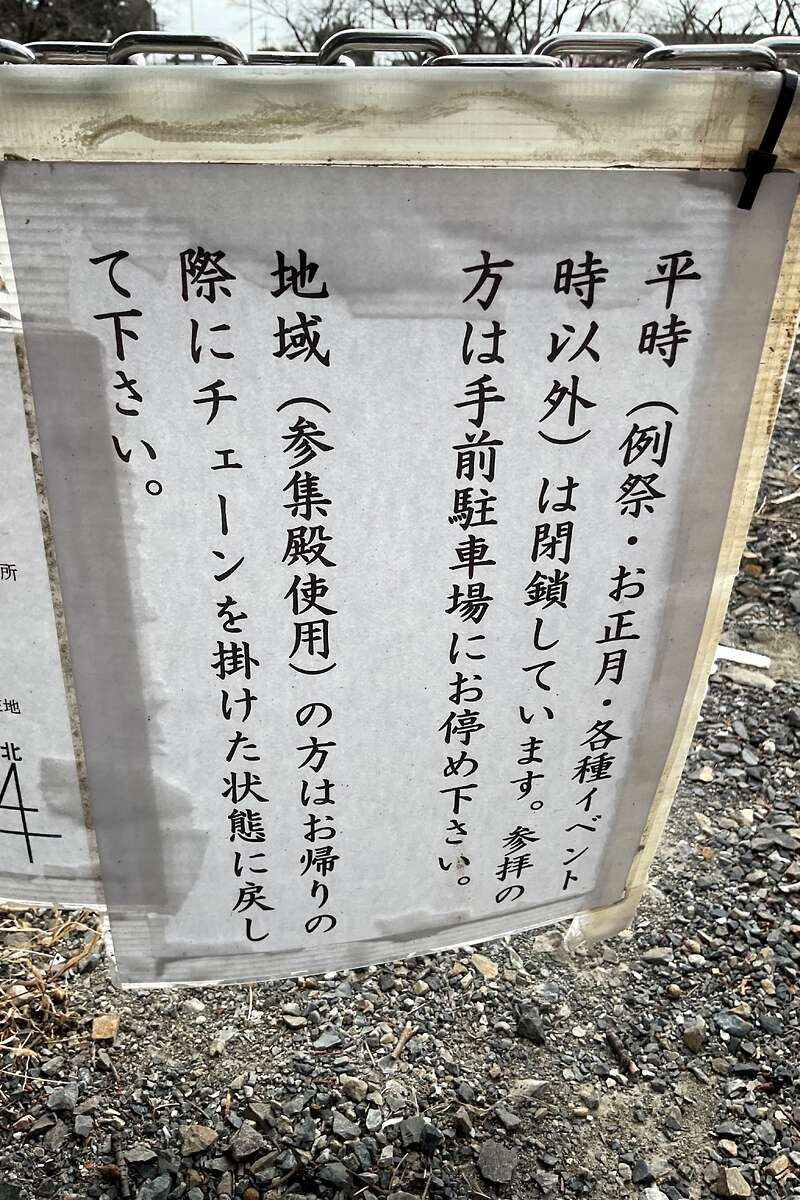 平時（例祭・お正月・各種イベント
時以外）は閉鎖しています。参拝の
方は手前駐車場にお停め下さい。
地域（参集殿使用）の方はお帰りの
際にチェーンを掛けた状態に戻し
て下さい。
所
地
北